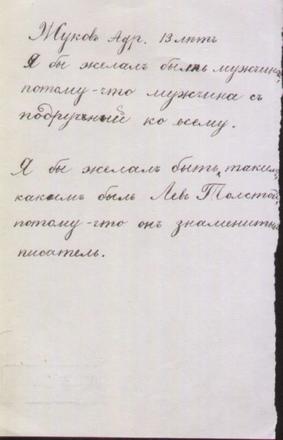 Жуковъ Адр. 13 лѣтъ
Я бы желалъ быть мужчина,
потому-что мужчина съ
подручный ко всему.
Я бы желалъ быть, такимъ,
какимъ былъ Левъ Толстой,
потому-что онъ знаменитый
писатель.